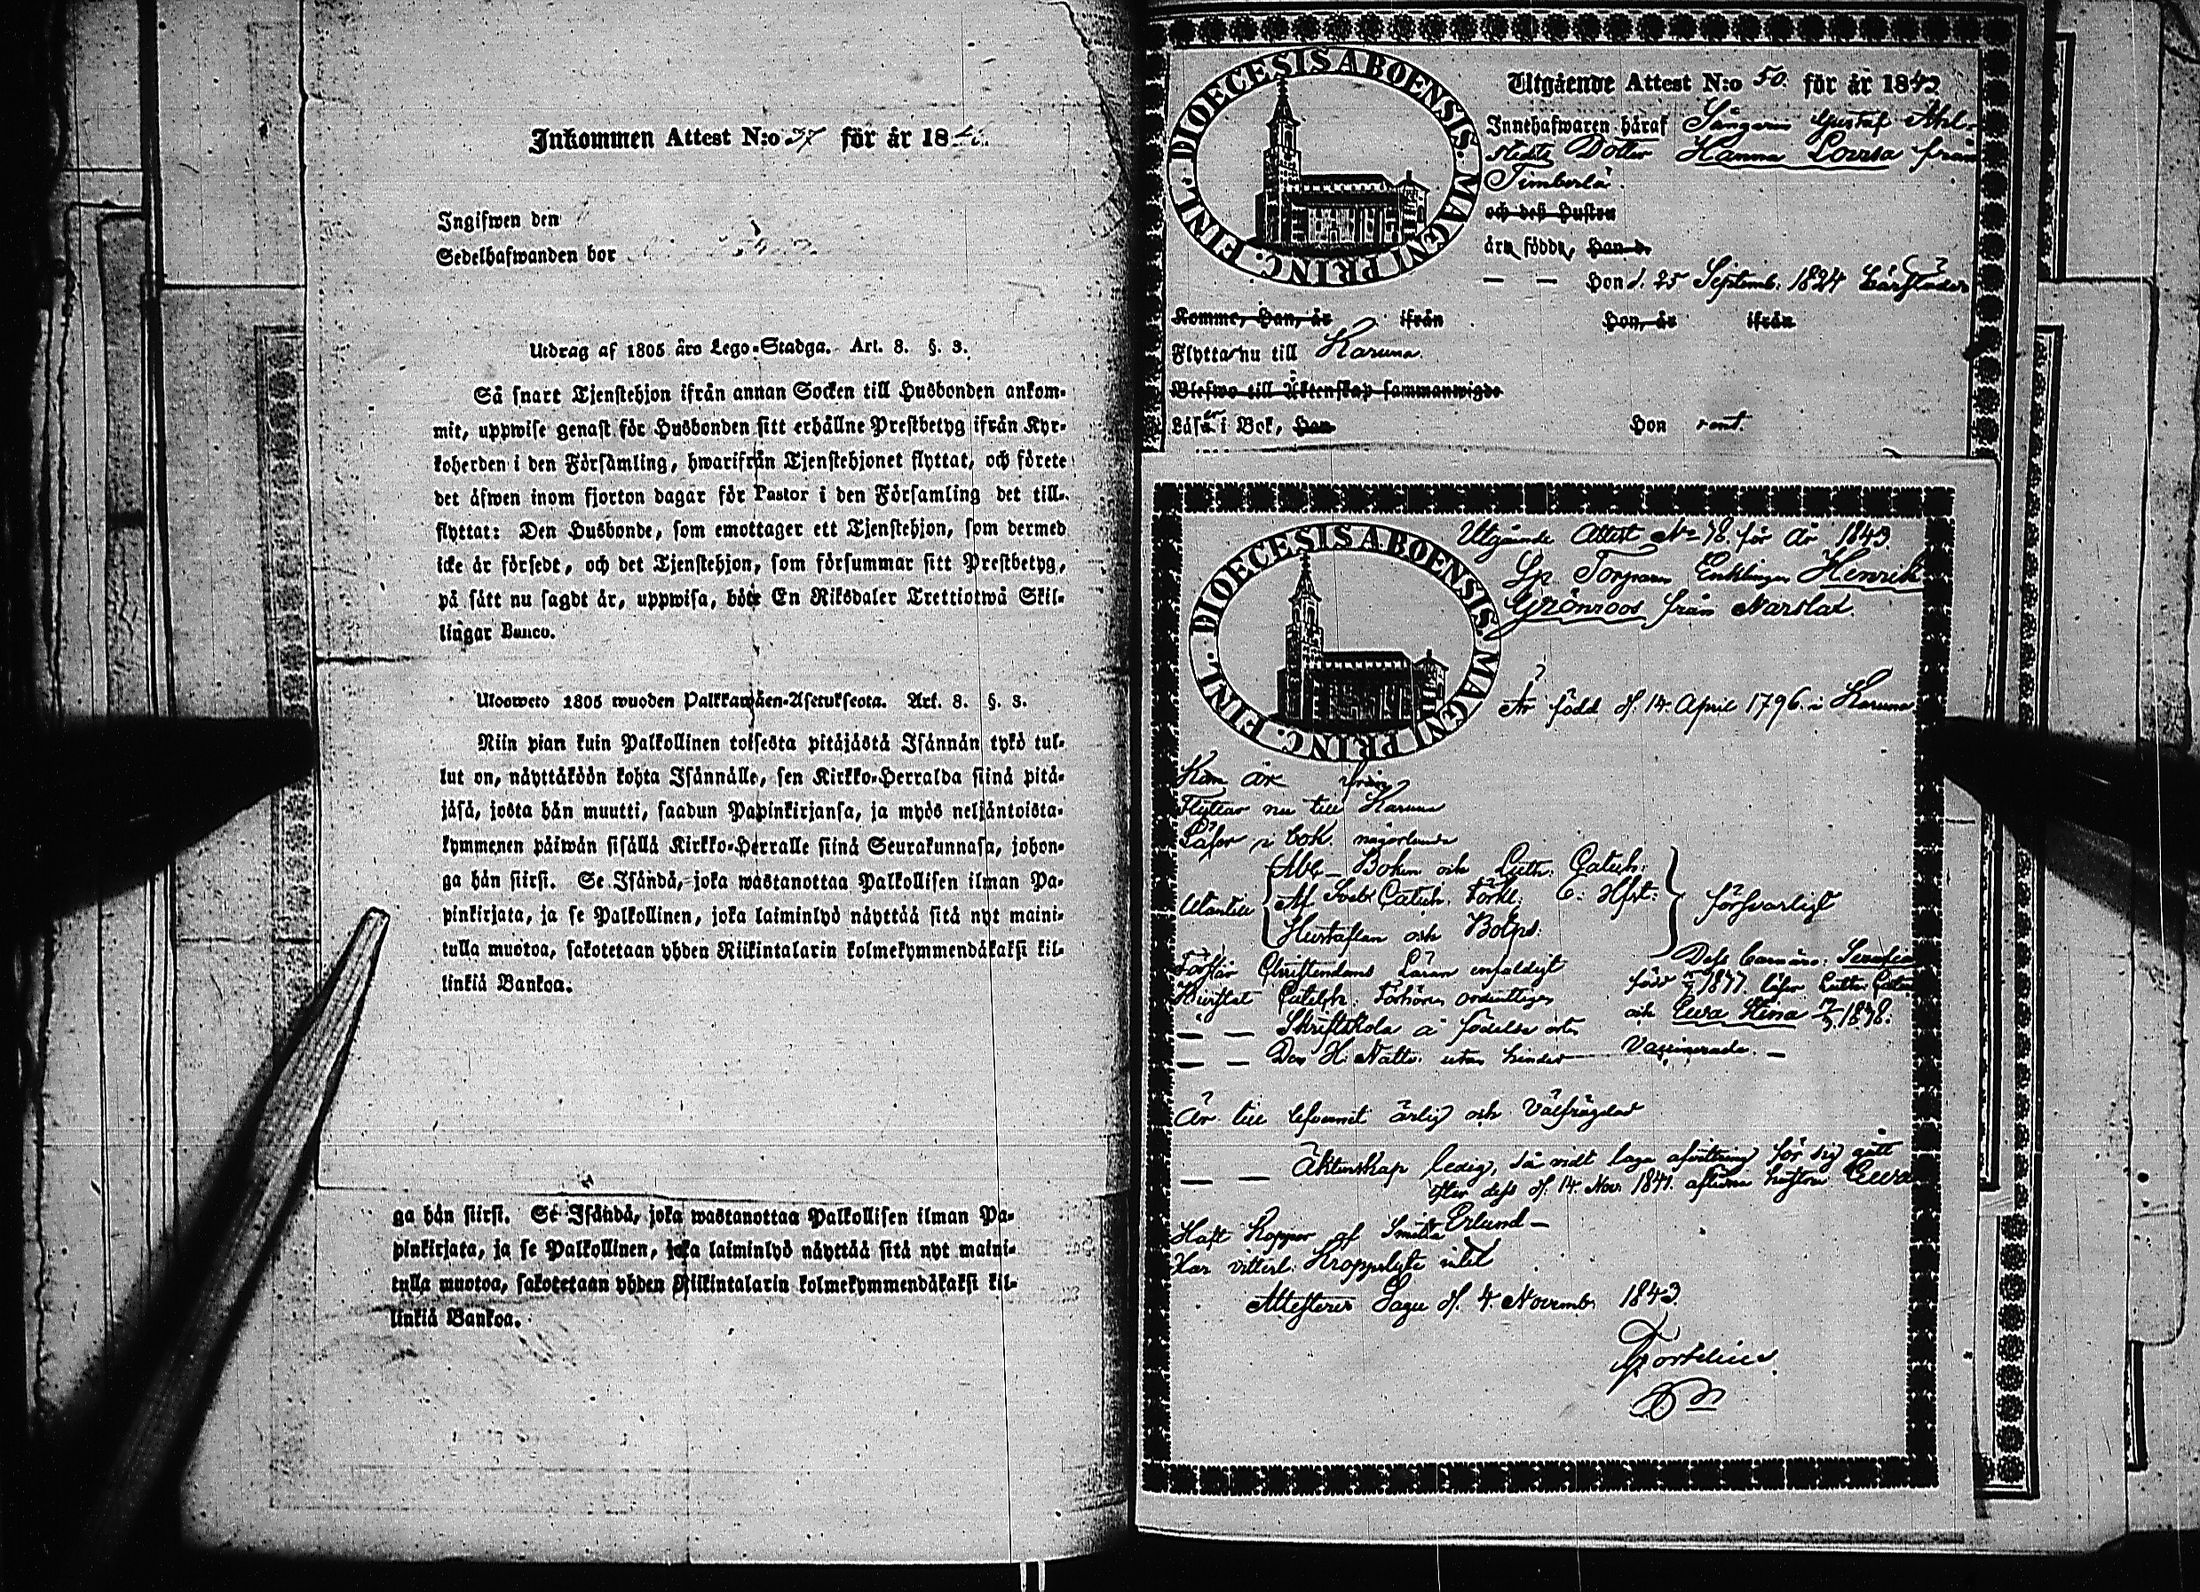 Inkommen Attest N:o 37 för år 18
Ingifwen den
Sedelhafwanden bor
Utdrag af 1805 års Lego-Stadga. Art. 8. §. 3.
Så snart Tjenstehjon ifrån annan Socken till Husbonden ankom-
mit, uppwise genast för Husbonden sitt erhållne Prestbetyg ifrån Kyr-
koherden i den Församling, hwarifrån Tjenstehjonet flyttat, och förete
det äfwen inom fjorton dagar för Pastor i den Församling det till-
flyttat: Den Husbonde, som emottager ett Tjenstehjon, som dermed
icke är försedt, och det Tjenstehjon, som försummar sitt Prestbetyg,
på sätt nu sagdt är, uppwisa, böte En Riksdaler Trettiotwå Skil-
lingar Banco.
Ulosweto 1805 wuoden Palkkawäen-Asetuksesta. Art. 8. §. 3.
Niin pian kuin Palkollinen toisesta pitäjästä Isännän tykö tul-
lut on, näyttäköön kohta Isännälle, sen Kirkko-Herralda siinä pitä-
jäsä, josta hän muutti, saadun Papinkirjansa, ja myös neljäntoista-
kymmenen päiwän sisällä Kirkko-Herralle siinä Seurakunnasa, johon-
ga hän siirsi. Se Isändä, joka wastanottaa Palkollisen ilman Pa-
pinkirjata, ja se Palkollinen, joka laiminlyö näyttää sitä nyt maini-
tulla muotoa, sakotetaan yhden Riikintalarin kolmekymmendäkaksi kil-
linkiä Bankoa.
ga hän siirsi. Se Isändä, joka wastanottaa Palkollisen ilman Pa-
pinkirjata, ja se Palkollinen, joka laiminlyö näyttää sitä nyt maini-
tulla muotoa, sakotetaan yhden Riikintalarin kolmekymmendäkaksi kil-
linkiä Bankoa.
DIOECESIS ABOENSIS. MAGNI PRINC. FINL.
Utgående Attest N:o 50. för år 1843
Innehafwaren häraf Gustaf Ahl-
stedts Dotter Hanna Lovisa från
Timberlä.
och dess Hustru
äro födde, Han d.
— — Hon d. 25 Septemb. 1824 härstädes
Komme, Han, år ifrån Hon, år ifrån
Flyttar nu till Karuna.
Blefwo till Äktenskap sammanwigde
Läser i Bok, Han Hon rent.
DIOECESIS ABOENSIS. MAGNI PRINC. FINL.
Utgående Attest No 78. för År 1843.
Enklingen Henrik
Grönroos från Narslax.
Är född d. 14. April 1796. i Karuna
Kom år ifrån
Flyttar nu till Karuna
Läser i bok någorlunda
Utantill Abc-Boken och Luth: Catech:
Af Sveb: Catech. Förkl: C: Hfst:
Hustaflan och Botps.
försvarligt
Förstår Christendoms Läran enfaldigt
Bevistat Catech. Förhören ordentligen
— — Skriftskola å födelse orten
— — Den H: Nattv. utan hinder
Dess barn äro:
född 1837. läser Luth. Catec
och Ewa Stina 1838.
Vaccinerade. —
Är till lefvernet ärlig och välfrägdad
— — Äktenskap ledig, så vidt laga afvittring för sig gått
efter dess d. 14. Nov. 1841. aflidna hustru Ewa
Erlund —
Haft Koppor af Smitta
Har vitterl. Kroppslyte intet
Attesterar Sagu d. 4. Novemb. 1843.